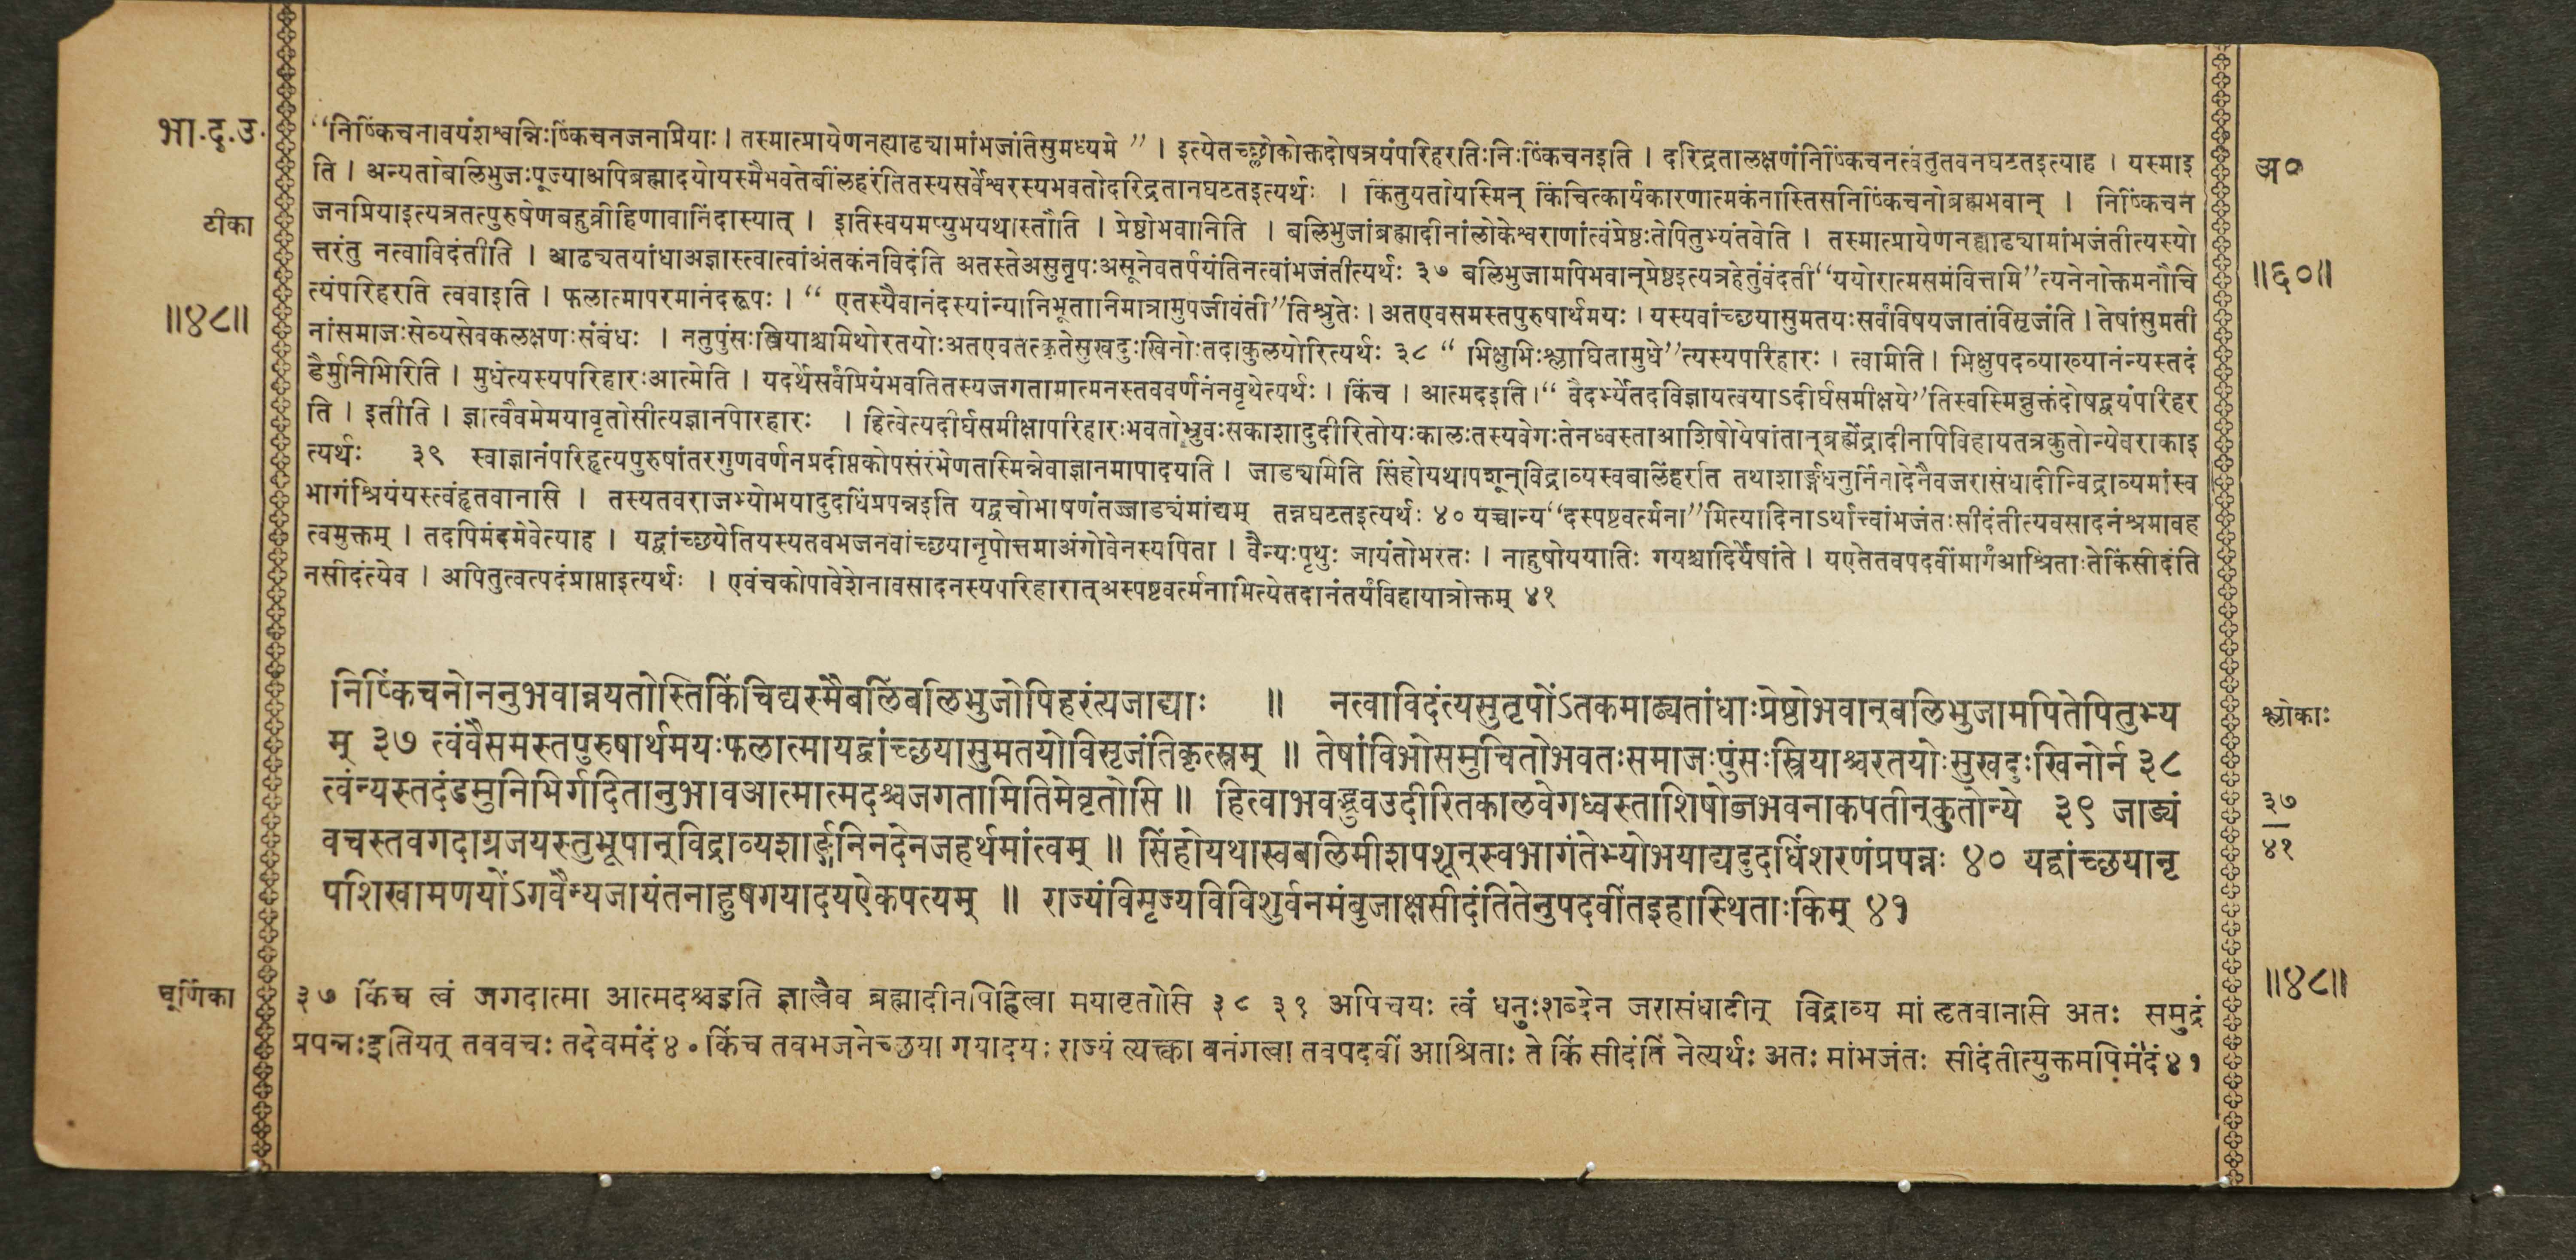 भा.द.उ.
टीका
॥४८॥
“निष्किंचनावयंशश्वन्निःष्किंचनजनप्रियाः । तस्मात्प्रायेणनह्याढ्यामांभजंतिसुमध्यमे” । इत्येतच्छ्लोकोक्तदोषत्रयंपरिहरतिःनिःष्किंचनइति । दरिद्रतालक्षणंनिष्किंचनत्वंतुतवनघटतइत्याह । यस्माइ
ति । अन्यतोबलिभुजःपूज्याअपिब्रह्मादयोयस्मैभवतेबलिंहरंतितस्यसर्वेश्वरस्यभवतोदरिद्रतानघटतइत्यर्थः । किंतुयतोयास्मिन् किंचित्कार्यकारणात्मकंनास्तिसनिष्किंचनोब्रह्मभवान् । निष्किंचन
जनप्रियाइत्यत्रतत्पुरुषेणबहुव्रीहिणावानिंदास्यात् । इतिस्वयमप्युभयथास्तौति । प्रेष्ठोभवानिति । बलिभुजांब्रह्मादीनांलोकेश्वराणांत्वंप्रेष्ठःतेपितुभ्यंतवेति । तस्मात्प्रायेणनह्याढ्यामांभजंतीत्यस्यो
त्तरंतु नत्वाविदंतीति । आढ्यतयांधाअज्ञास्त्वात्वांअंतकंनविदंति अतस्तेअसुतृपःअसूनेवतर्पयंतिनत्वांभजंतीत्यर्थः ३७ बलिभुजामपिभवान्प्रेष्ठइत्यत्रहेतुंवंदती“ययोरात्मसमंवित्तमि”त्यनेनोक्तमनौचि
त्यंपरिहरति त्ववाइति । फलात्मापरमानंदरूपः । “ एतस्यैवानंदस्यांन्यानिभूतानिमात्रामुपजीवंती”तिश्रुतेः । अतएवसमस्तपुरुषार्थमयः । यस्यवांच्छयासुमतयःसर्वंविषयजातंविसृजंति । तेषांसुमती
नांसमाजःसेव्यसेवकलक्षणःसंबंधः । नतुपुंसःस्त्रियाश्चमिथोरतयोःअतएवतत्कृतेसुखदुःखिनोःतदाकुलयोरित्यर्थः ३८ “ भिक्षुभिःश्लाघितामुधे”त्यस्यपरिहारः । त्वामिति । भिक्षुपदव्याख्यानंन्यस्तदं
डैर्मुनिभिरिति । मुधेत्यस्यपरिहारःआत्मेति । यदर्थेसर्वंप्रियंभवतितस्यजगतामात्मनस्तववर्णनंनवृथेत्यर्थः । किंच । आत्मदइति।“ वैदर्भ्येतदविज्ञायत्वयाऽदीर्घसमीक्षये”तिस्वस्मिन्नुक्तंदोषद्वयंपरिहर
ति । इतीति । ज्ञात्वैवमेमयावृतोसीत्यज्ञानपरिहारः । हित्वेत्यदीर्घसमीक्षापरिहारःभवतोभ्रुवःसकाशादुदीरितोयःकालःतस्यवेगःतेनध्वस्ताआशिषोयेषांतान्ब्रह्मेंद्रादीनपिविहायतत्रकुतोन्येवराकाइ
त्यर्थः ३९ स्वाज्ञानंपरिहृत्यपुरुषांतरगुणवर्णनप्रदीप्तकोपसंरंभेणतस्मिन्नेवाज्ञानमापादयति । जाड्यमिति सिंहोयथापशून्विद्राव्यस्वबलिंहरति तथाशार्ङ्गधनुर्निनादेनैवजरासंधादीन्विद्राव्यमांस्व
भागंश्रियंयस्त्वंहृतवानासि । तस्यतवराजभ्योभयादुदधिंप्रपन्नइति यद्वचोभाषणंतज्जाड्यंमांद्यम् तन्नघटतइत्यर्थः ४० यच्चान्य“दस्पष्टवर्त्मना”मित्यादिनाऽर्थात्त्वांभजंतःसीदंतीत्यवसादनंश्रमावह
त्वमुक्तम् । तदपिमंदमेवेत्याह । यद्वांच्छयेतियस्यतवभजनवांच्छयानृपोत्तमाअंगोवेनस्यपिता । वैन्यःपृथुः जायंतोभरतः । नाहुषोययातिः गयश्चादिर्येषांते । यएतेतवपदवींमार्गंआश्रिताःतेकिंसीदंति
नसीदंत्येव । अपितुत्वत्पदंप्राप्ताइत्यर्थः । एवंचकोपावेशेनावसादनस्यपरिहारात्अस्पष्टवर्त्मनामित्येतदानंतर्यंविहायात्रोक्तम् ४१
अ०
॥६०॥
निष्किंचनोननुभवान्नयतोस्तिकिंचिद्यस्मैबलिंबलिभुजोपिहरंत्यजाद्याः ॥ नत्वाविदंत्यसुतृपोंऽतकमाढ्यतांधाःप्रेष्ठोभवान्बलिभुजामपितेपितुभ्य
म् ३७ त्वंवैसमस्तपुरुषार्थमयःफलात्मायद्वांच्छयासुमतयोविसृजंतिकृत्स्नम् ॥ तेषांविभोसमुचितोभवतःसमाजःपुंसःस्त्रियाश्चरतयोःसुखदुःखिनोर्न ३८
त्वंन्यस्तदंडमुनिभिर्गदितानुभावआत्मात्मदश्चजगतामितिमेवृतोसि ॥ हित्वाभवद्भ्रुवउदीरितकालवेगध्वस्ताशिषोब्जभवनाकपतीन्कुतोन्ये ३९ जाड्यं
वचस्तवगदाग्रजयस्तुभूपान्विद्राव्यशार्ङ्गनिनदेनजहर्थमांत्वम् ॥ सिंहोयथास्वबलिमीशपशून्स्वभागंतेभ्योभयाद्यदुदधिंशरणंप्रपन्नः ४० यद्वांच्छयानृ
पशिखामणयोंऽगवैन्यजायंतनाहुषगयादयऐकपत्यम् ॥ राज्यंविसृज्यविविशुर्वनमंबुजाक्षसीदंतितेनुपदवींतइहास्थिताःकिम् ४१
श्लोकाः
३७
४१
चूर्णिका
३७ किंच त्वं जगदात्मा आत्मदश्चइति ज्ञात्वैव ब्रह्मादीनपिहित्वा मयावृतोसि ३८ ३९ अपिचयः त्वं धनुःशब्देन जरासंधादीन् विद्राव्य मां हृतवानासि अतः समुद्रं
प्रपन्नःइतियत् तववचः तदेवमंदं४० किंच तवभजनेच्छया गयादयः राज्यं त्यक्त्वा वनंगत्वा तवपदवीं आश्रिताः ते किं सीदंतिं नेत्यर्थः अतः मांभजंतः सीदंतीत्युक्तमपिमंदं४१
॥४८॥